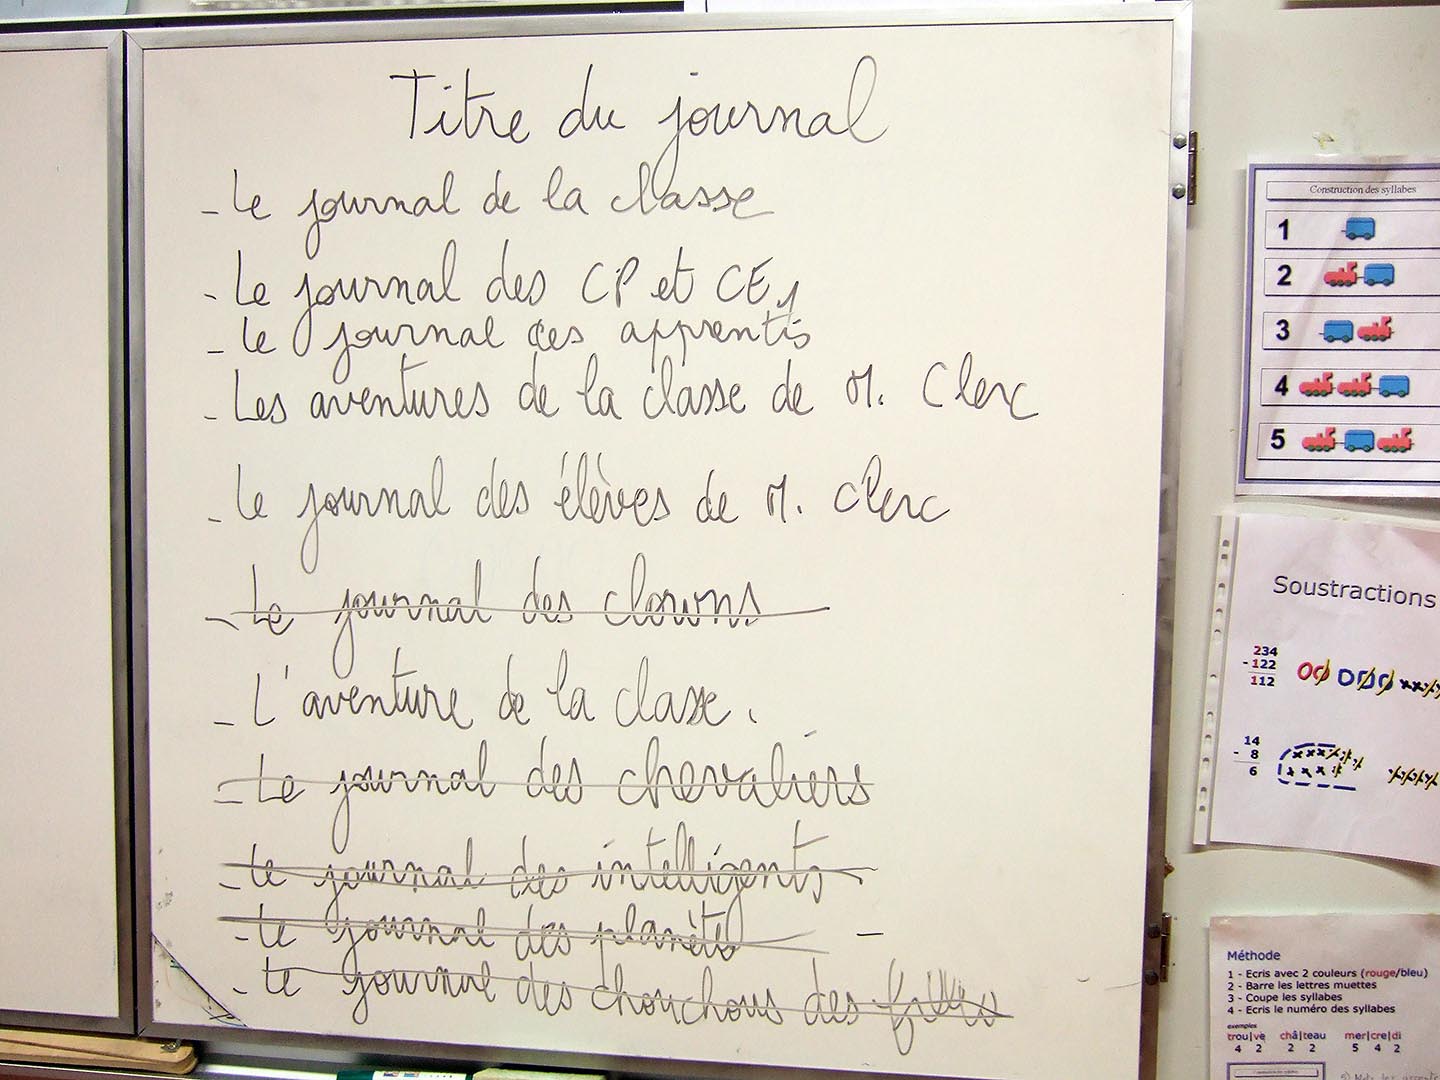 Titre du journal
- Le journal de la classe
- Le journal des CP et CE1
- Le journal des apprentis
- Les aventures de la classe de M. Clerc
- Le journal des élèves de M. Clerc
- Le journal des clowns
- L'aventure de la classe.
- Le journal des chevaliers
- Le journal des intelligents
- Le journal des planète -
- Le journal des chouchous des
Construction des syllabes
1
2
3
4
5
Soustractions
234
- 122
112
14
- 8
6
Méthode
1 - Ecris avec 2 couleurs (rouge/bleu)
2 - Barre les lettres muettes
3 - Coupe les syllabes
4 - Ecris le numéro des syllabes
exemples
trou|ve châ|teau mer|cre|di
4 2 2 2 5 4 2